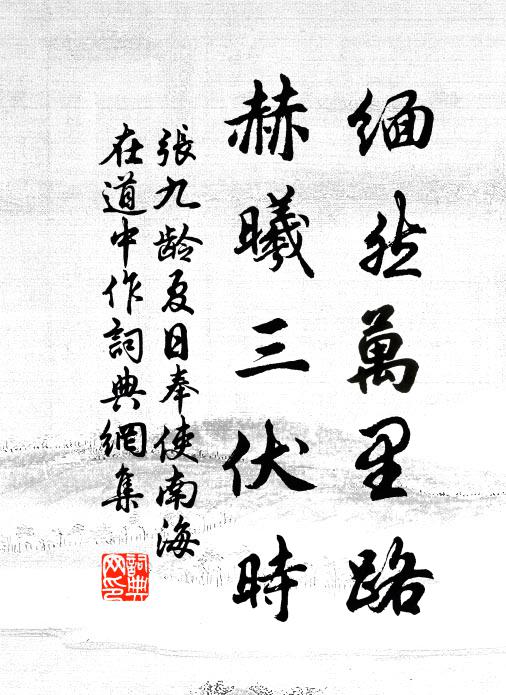 緬然萬里路
赫曦三伏時
張九龄夏日奉使南海
在道中作詞典網集
詞典
网印